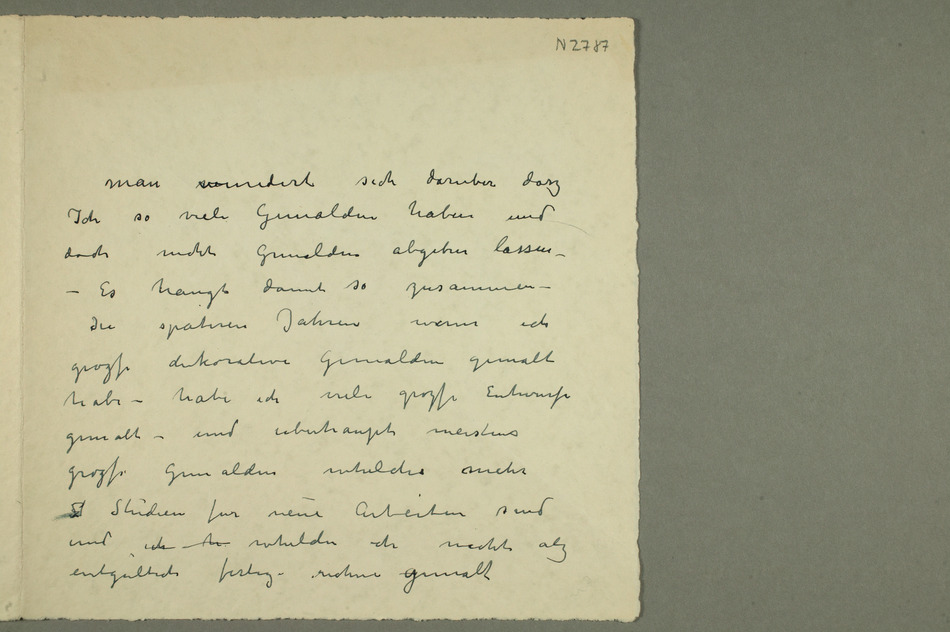 N 2787
man wundert sich daruber dasz
Ich so viele Gemälden haben und
doch nicht Gemälden abgeben lassen –
– Es hangt damit so zusammen –
die spateren Jahren wenn ich
groszse dekorative Gemalden gemalt
habe – habe ich viele groszse Entwurfe
gemalt – und uberhaupt meistens
groszse Gemalden whelche mehr
St Studien fur neue Arbeiten sind
und ich h whelche ich nicht alz
entgultich fertig rechne gemalt